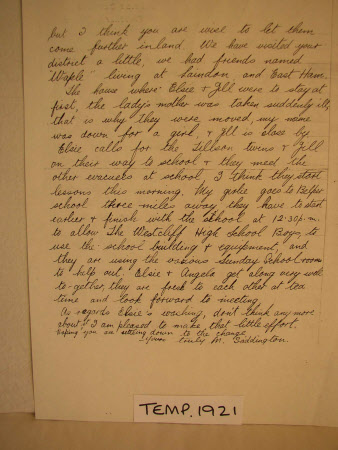 but I think you are wise to let them
come further inland. We have visited your
district a little, we had friends named
'Waple' living at Laindon, and East Ham.
The house where Elsie & Jill were to stay at
first, the lady's mother was taken suddenly ill,
that is why they were moved, my name
was down for a girl, & Jill is close by
Elsie calls for the Tillson twins & Jill
on their way to school & they meet the
other evacuees at school, I think they start
lessons this morning. My girlie goes to Belper
school three miles away they have to start
earlier & finish with the school at 12.30 p.m.
to allow The Westcliff High School Boys, to
use the school building & equipment, and
they are using the various Sunday School rooms
to help out. Elsie & Angela get along very well
to-gether, they are fresh to each other at tea
time and look forward to meeting.
As regards Elsie's washing, don't think any more
about it I am pleased to make, that little effort.
Hoping you are settling down to the change
Yours Emily M. Saddington.
TEMP. 1921